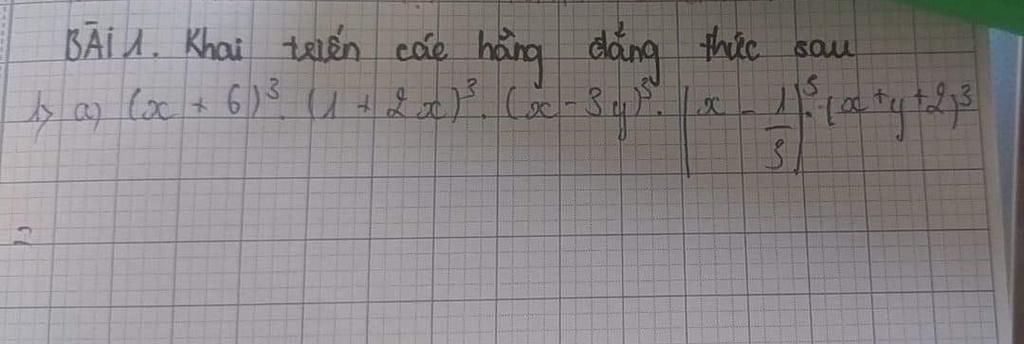 BÀI 1. Khai triển các hằng đẳng thức sau
1) a) (x + 6)³. (1 + 2x)³. (x - 3y)³. (x - 1/3)³. (x + y + 2)³
=